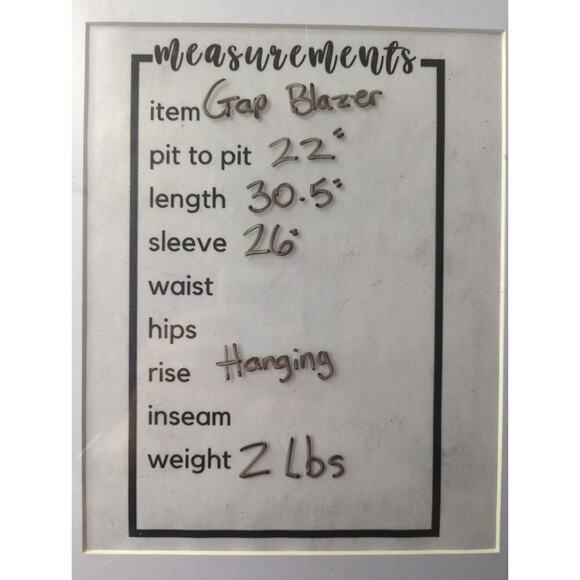 measurements
item Gap Blazer
pit to pit 22"
length 30.5"
sleeve 26"
waist
hips
rise Hanging
inseam
weight 2 Lbs